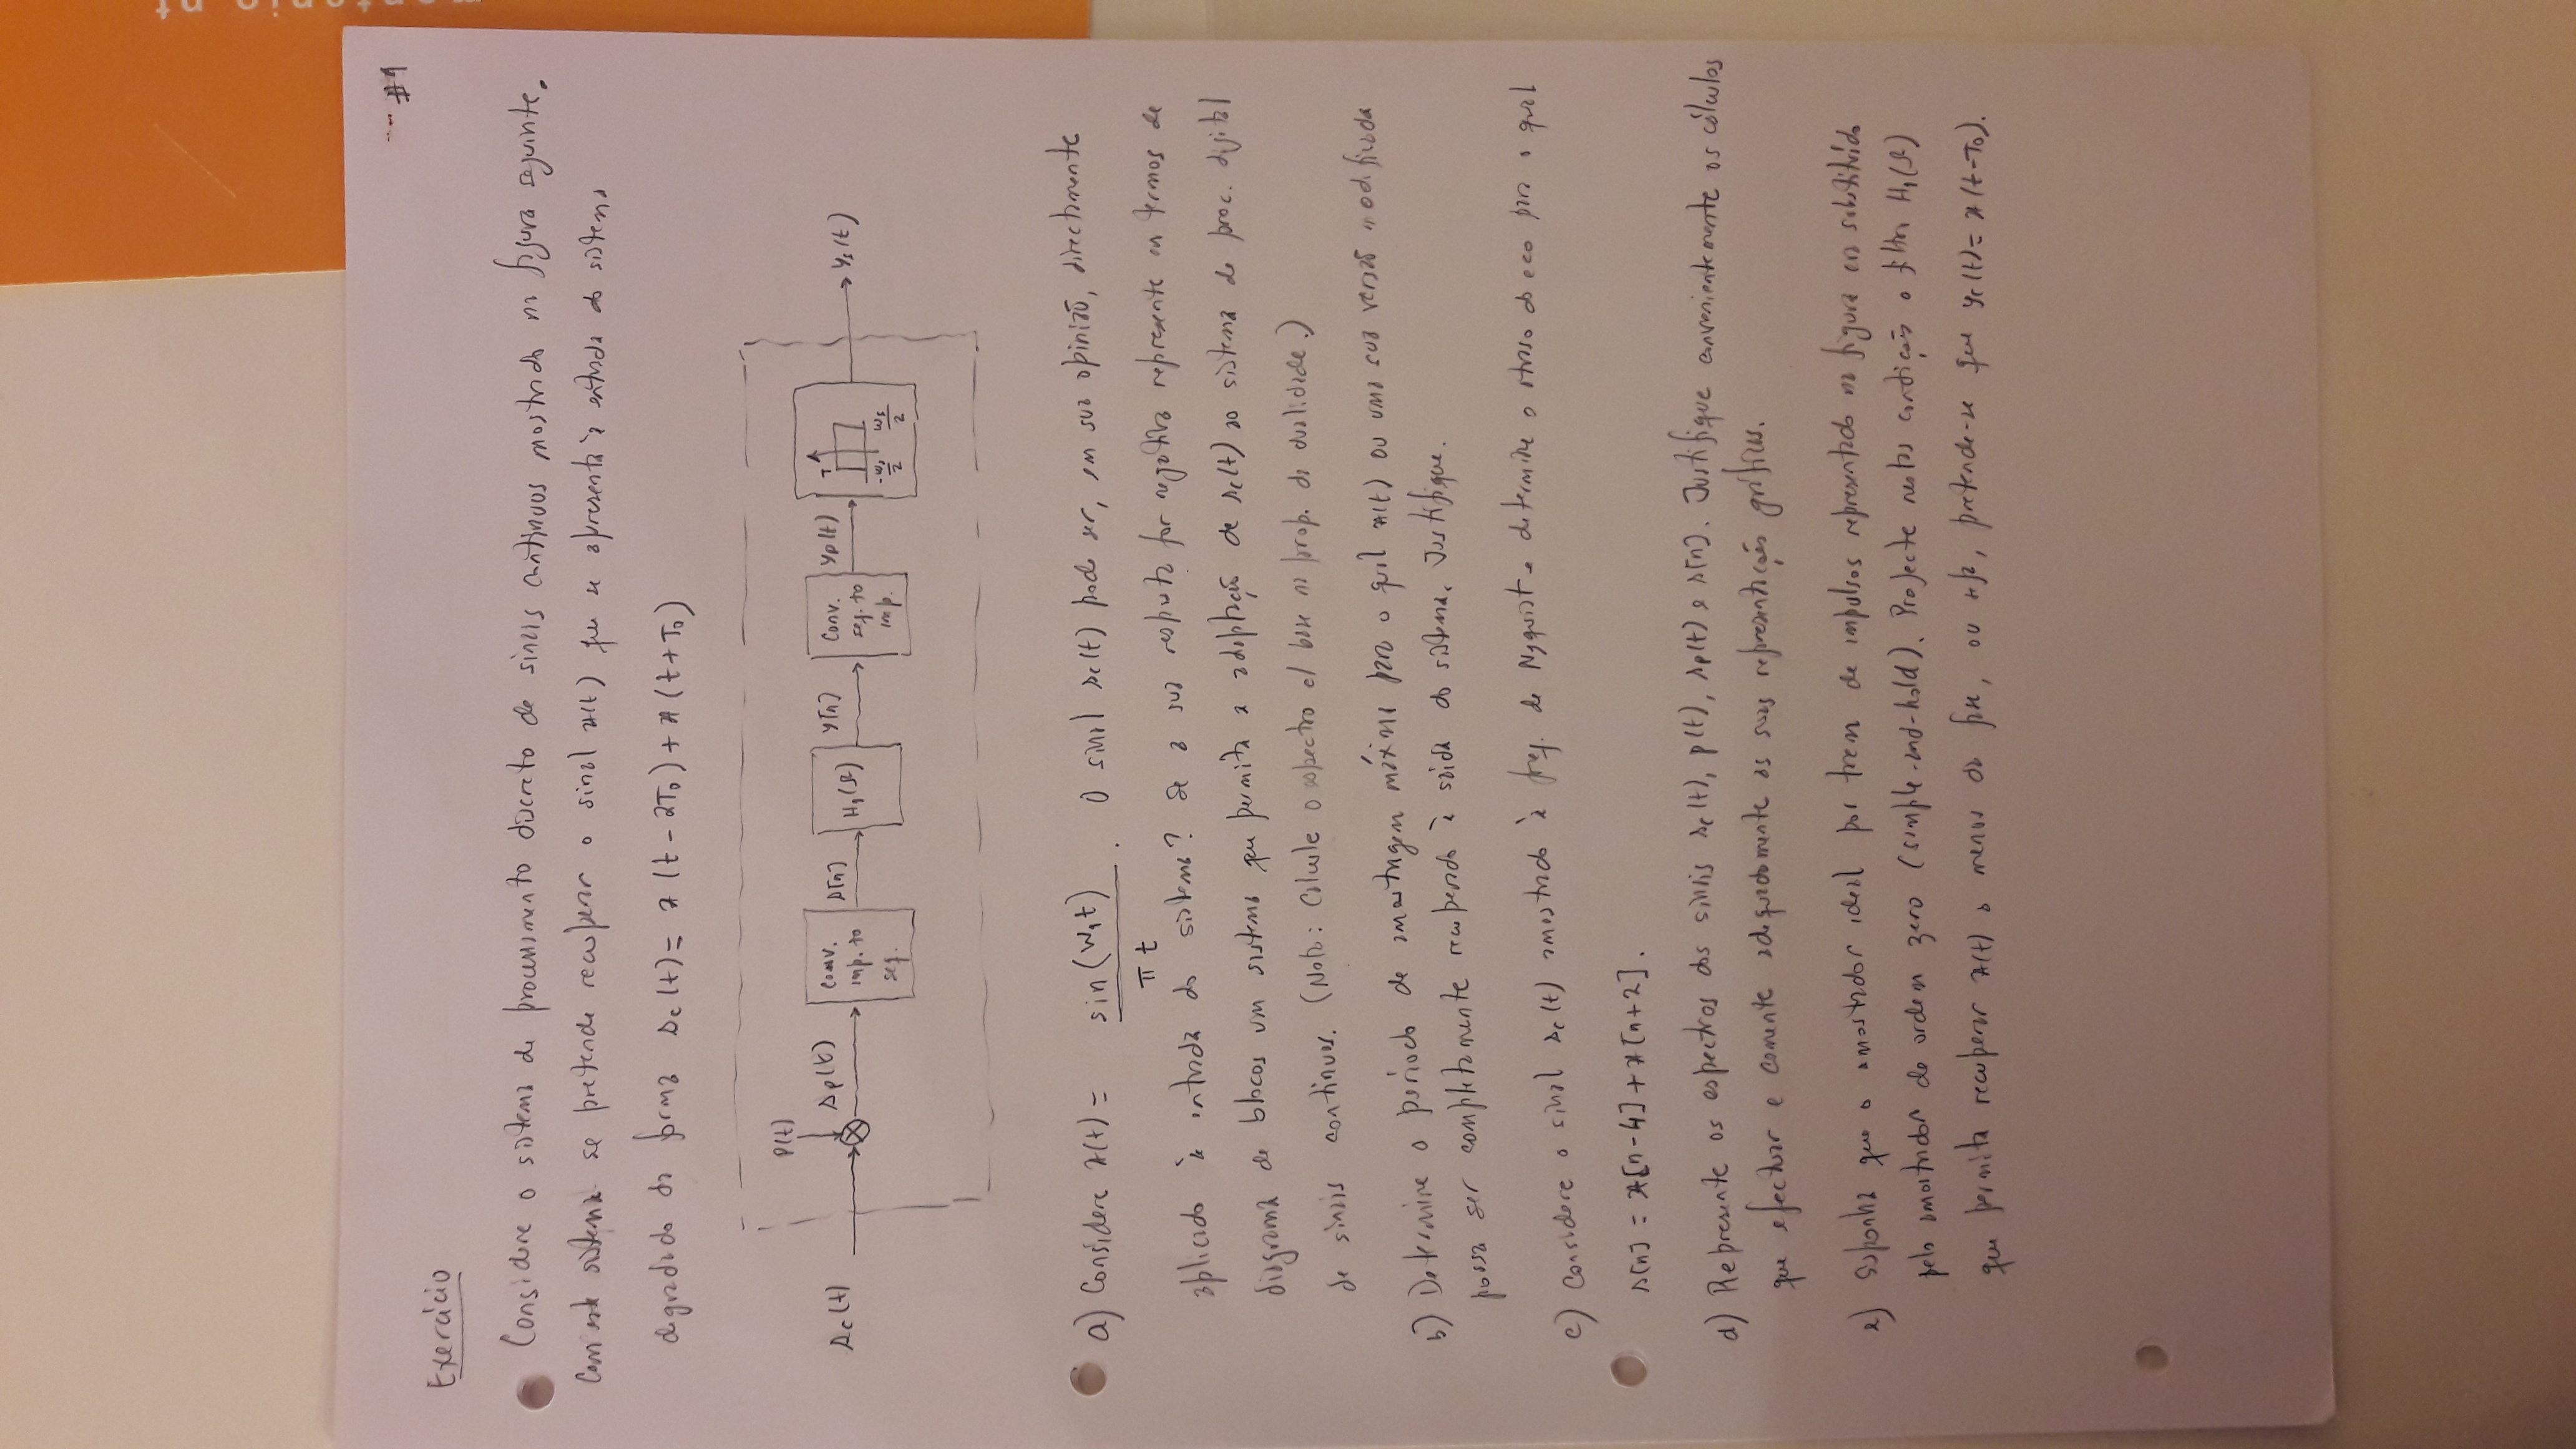 #1
Exercício
Considere o sistema de processamento discreto de sinais contínuos mostrado na figura seguinte.
Com este sistema se pretende recuperar o sinal x(t) que se apresenta à entrada do sistema
degradado da forma sc(t) = x(t - 2T₀) + x(t + T₀)
p(t)
sc(t) sp(t) Conv. imp. to seq. s[n] H₁(Ω) y[n] Conv. seq. to imp. yp(t) T -ws/2 ws/2 ys(t)
a) Considere x(t) = sin(w₁t) / πt . O sinal sc(t) pode ser, em sua opinião, directamente
aplicado à entrada do sistema? Se a sua resposta for negativa represente em termos de
diagrama de blocos um sistema que permita a adaptação de sc(t) ao sistema de proc. digital
de sinais contínuos. (Nota: Calcule o espectro c/ base na prop. da dualidade.)
b) Determine o período de amostragem máximo para o qual x(t) ou uma sua versão modificada
possa ser completamente recuperado à saída do sistema. Justifique.
c) Considere o sinal sc(t) amostrado à freq. de Nyquist e determine o atraso do eco para o qual
s[n] = x[n-4] + x[n+2].
d) Represente os espectros dos sinais sc(t), p(t), sp(t) e s[n]. Justifique convenientemente os cálculos
que efectuar e comente adequadamente as suas representações gráficas.
e) Suponha que o amostrador ideal por trem de impulsos representado na figura era substituído
pelo amostrador de ordem zero (sample-and-hold). Projecte nestas condições o filtro H₁(Ω)
que permita recuperar x(t) a menos da fase, ou seja, pretende-se que yc(t) = x(t-T₀).